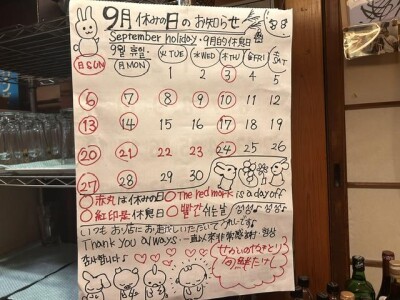 9月 休みの日のお知らせ
September holiday・9月的休息日
9월 휴일
日SUN 月MON 火TUE 水WED 木THU 金FRI 土SAT
1 2 3 4 5
6 7 8 9 10 11 12
13 14 15 16 17 18 19
20 21 22 23 24 25 26
27 28 29 30
○赤丸は休みの日 ○The red mark is a day off
○紅印是休息日 ○빨간 쉬는날
いつもお店に
Thank you always・一直以来非常感謝
せかいのやきとり